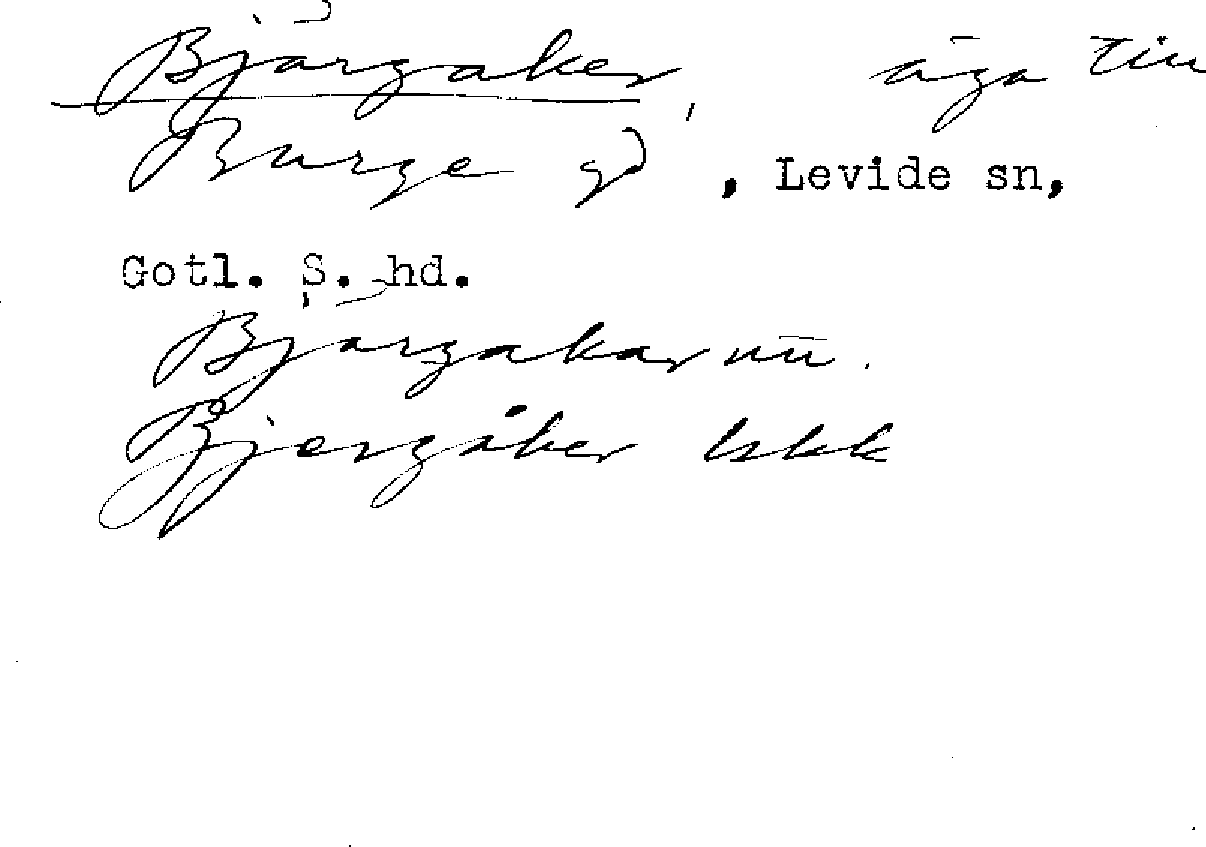 Bjärgåker, äga till
Burge gd, Levide sn,
Gotl. S. hd.
Bjärgakar
Bjergåker lskk